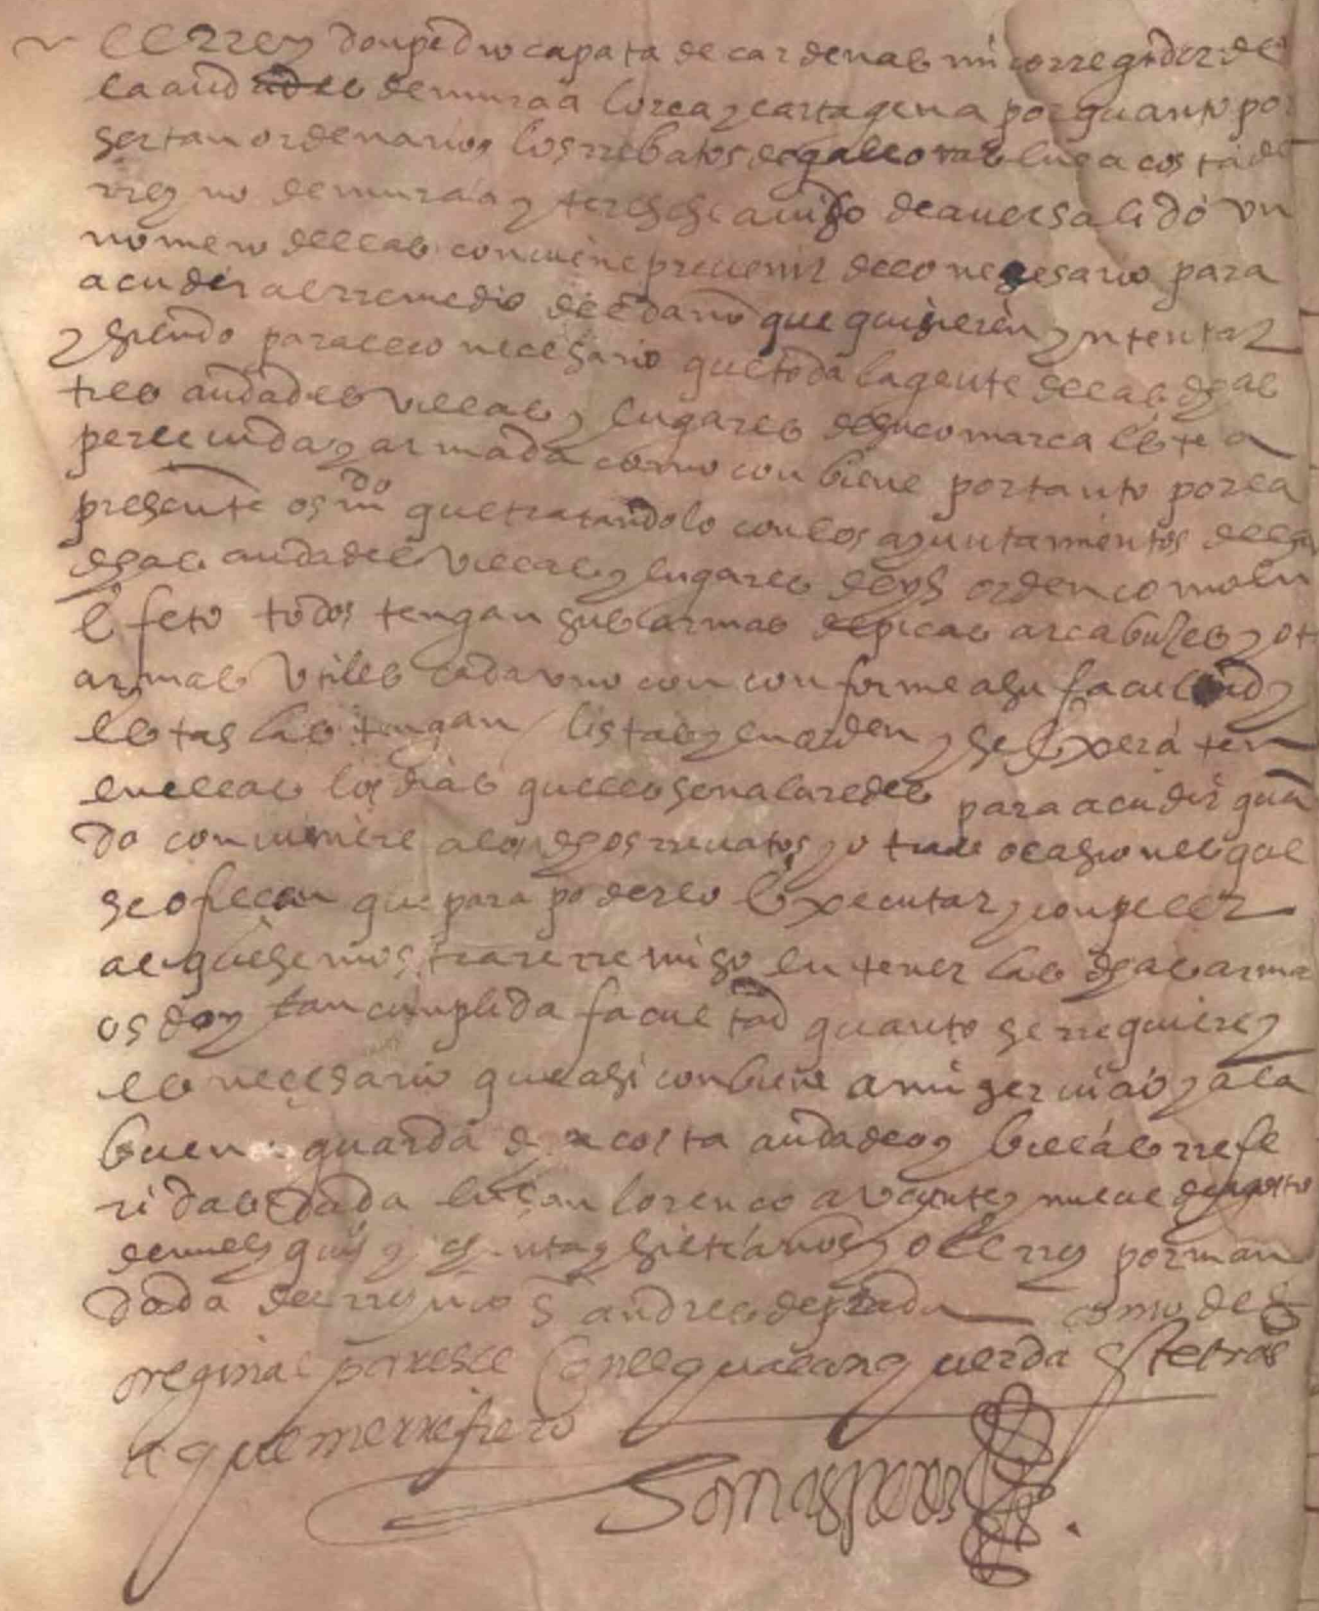 el rrey don pedro çapata de cardenas mi corregidor de
la ciudad de murcia lorca y cartagena por quanto por
ser tan ordenarios los rrebatos de galeotas en la costa del
rreyno de murcia y tenerse aviso de aver salido un
numero dellas conviene prevenir de lo neçesario para
acudir al rremedio del daño que quisieren yntentar
y siendo para ello neçesario que toda la gente de las dhas
tres ciudades villas y lugares de su comarca este a
percevida y armada como conbiene por tanto por la
presente os mdo que tratandolo con los ayuntamientos de las
dhas ciudades villas y lugares deys orden como en
efeto todos tengan sus armas de picas arcabuzes y ot
armas utiles cada uno con conforme a su facultad y
estas las tengan listas y en orden y se exerciten
en ellas los dias que les señalaredes para acudir quan
do conviniere a los dhos rrevatos y otras ocasiones que
se ofrecan que para poderlo executar y conpeler
al que se mostrare rremiso en tener las dhas armas
os doy tan cunplida facultad quanto se rrequiere y
es neçesario que asi conbiene a mi servicio y a la
buena guarda de la costa ciudades y villas rrefe
ridas dada en san lorenço a veynte y nueve de agosto
de mill y quis y ochenta y siete años yo el rrey por man
dado del rrey nro sr andres de prada como del
oreginal paresce con el qual concuerda este tras
a que me rrefiero